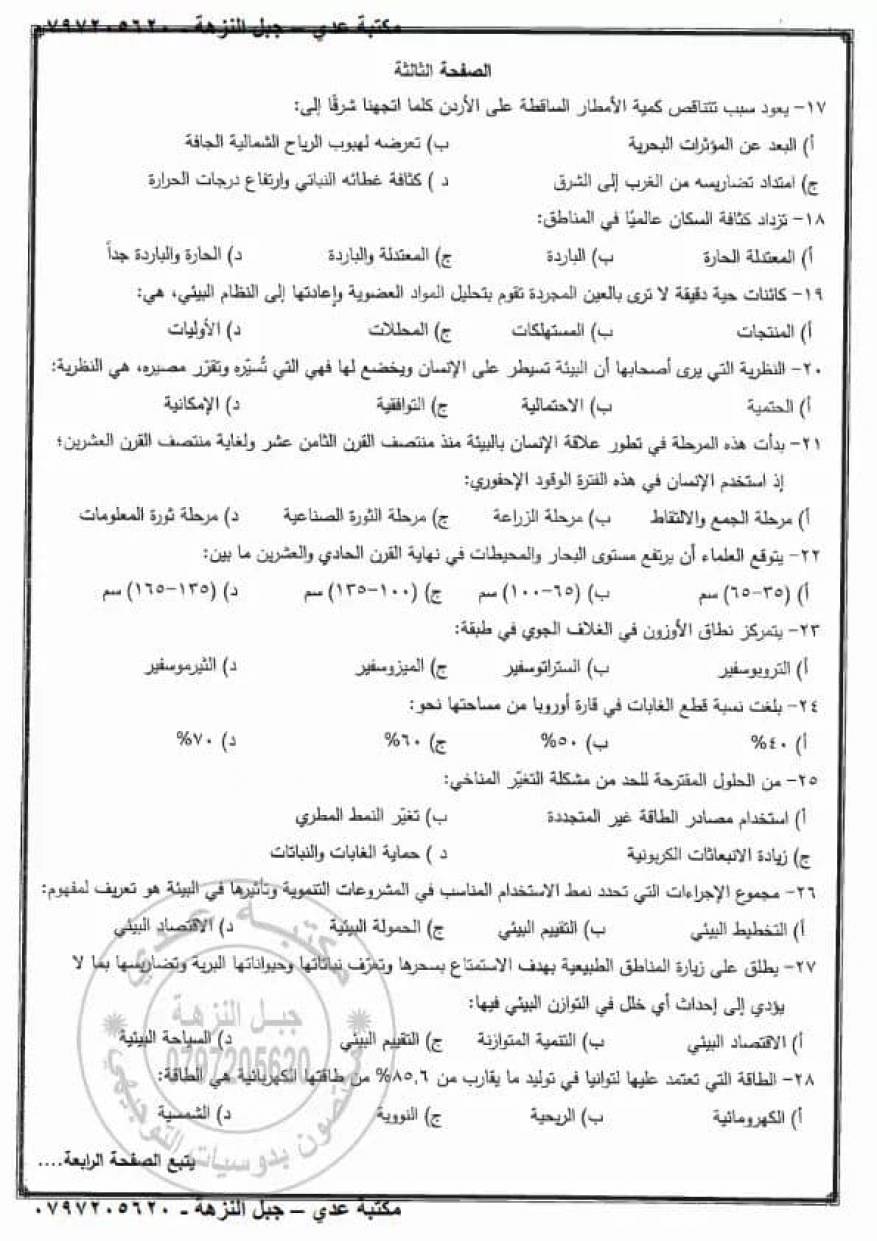 مكتبة عدي – جبل النزهة - ٠٧٩٧٢٠٥٦٢٠
الصفحة الثالثة
١٧- يعود سبب تتناقص كمية الأمطار الساقطة على الأردن كلما اتجهنا شرقًا إلى:
أ) البعد عن المؤثرات البحرية ب) تعرضه لهبوب الرياح الشمالية الجافة
ج) امتداد تضاريسه من الغرب إلى الشرق د ) كثافة غطائه النباتي وارتفاع درجات الحرارة
١٨- تزداد كثافة السكان عالميًا في المناطق:
أ) المعتدلة الحارة ب) الباردة ج) المعتدلة والباردة د) الحارة والباردة جداً
١٩- كائنات حية دقيقة لا ترى بالعين المجردة تقوم بتحليل المواد العضوية وإعادتها إلى النظام البيئي، هي:
أ) المنتجات ب) المستهلكات ج) المحللات د) الأوليات
٢٠- النظرية التي يرى أصحابها أن البيئة تسيطر على الإنسان ويخضع لها فهي التي تُسيّره وتقرّر مصيره، هي النظرية:
أ) الحتمية ب) الاحتمالية ج) التوافقية د) الإمكانية
٢١- بدأت هذه المرحلة في تطور علاقة الإنسان بالبيئة منذ منتصف القرن الثامن عشر ولغاية منتصف القرن العشرين؛
إذ استخدم الإنسان في هذه الفترة الوقود الإحفوري:
أ) مرحلة الجمع والالتقاط ب) مرحلة الزراعة ج) مرحلة الثورة الصناعية د) مرحلة ثورة المعلومات
٢٢- يتوقع العلماء أن يرتفع مستوى البحار والمحيطات في نهاية القرن الحادي والعشرين ما بين:
أ) (٣٥-٦٥) سم ب) (٦٥-١٠٠) سم ج) (١٠٠-١٣٥) سم د) (١٣٥-١٦٥) سم
٢٣- يتمركز نطاق الأوزون في الغلاف الجوي في طبقة:
أ) التروبوسفير ب) الستراتوسفير ج) الميزوسفير د) الثيرموسفير
٢٤- بلغت نسبة قطع الغابات في قارة أوروبا من مساحتها نحو:
أ) ٤٠% ب) ٥٠% ج) ٦٠% د) ٧٠%
٢٥- من الحلول المقترحة للحد من مشكلة التغيّر المناخي:
أ) استخدام مصادر الطاقة غير المتجددة ب) تغيّر النمط المطري
ج) زيادة الانبعاثات الكربونية د ) حماية الغابات والنباتات
٢٦- مجموع الإجراءات التي تحدد نمط الاستخدام المناسب في المشروعات التنموية وتأثيرها في البيئة هو تعريف لمفهوم:
أ) التخطيط البيئي ب) التقييم البيئي ج) الحمولة البيئية د) الاقتصاد البيئي
٢٧- يطلق على زيارة المناطق الطبيعية بهدف الاستمتاع بسحرها وتعرّف نباتاتها وحيواناتها البرية وتضاريسها بما لا
يؤدي إلى إحداث أي خلل في التوازن البيئي فيها:
أ) الاقتصاد البيئي ب) التنمية المتوازنة ج) التقييم البيئي د) السياحة البيئية
٢٨- الطاقة التي تعتمد عليها لتوانيا في توليد ما يقارب من ٨٥,٦% من طاقتها الكهربائية هي الطاقة:
أ) الكهرومائية ب) الريحية ج) النووية د) الشمسية
يتبع الصفحة الرابعة....
مكتبة عدي – جبل النزهة - ٠٧٩٧٢٠٥٦٢٠
مكتبة عدي
جبل النزهة
0797205620
مختصون بدوسيات التوجيهي